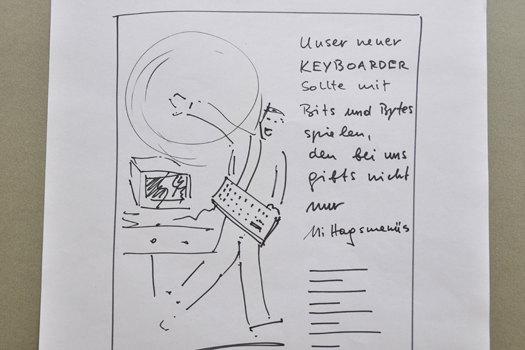 Unser neuer
KEYBOARDER
Sollte mit
Bits und Bytes
spielen,
den bei uns
gibts nicht
nur
Mittagsmenüs